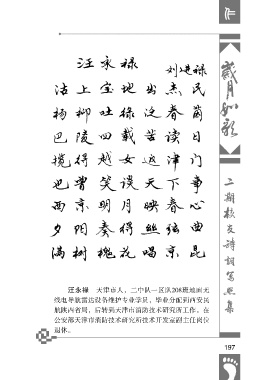 汪永禄
刘建禄
沽上宝地出杰民
杨柳吐绿泛春茵
巴陵四载苦读日
揽得越女返津门
也曾笑谈天下事
西京明月映春心
夕阳奏得丝弦曲
满树槐花唱京昆
汪永禄 天津市人，二中队一区队208班地面无
线电导航雷达设备维护专业学员，毕业分配到西安民
航陕西省局，后转到天津市消防技术研究所工作，在
公安部天津市消防技术研究所技术开发室副主任岗位
退休。
岁月如歌
二期校友诗词写照集
197